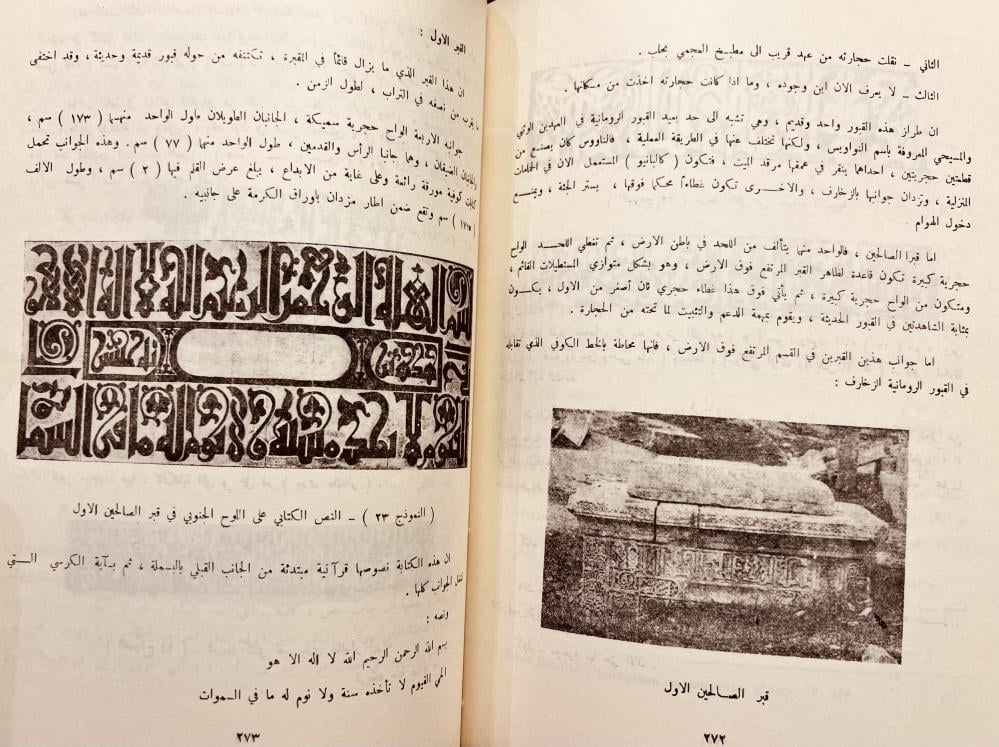 الثاني – نقلت حجارته من عهد قريب الى مطبخ العجمي بحلب .
الثالث – لا يعرف الان اين وجوده ، وما اذا كانت حجارته اخذت من مكانها .
ان طراز هذه القبور واحد وقديم ، وهي تشبه الى حد بعيد القبور الرومانية في العهدين الوثني
والمسيحي المعروفة باسم النواويس ، ولكنها تختلف عنها في الطريقة العملية ، فالناووس كان يصنع من
قطعتين حجريتين ، احداهما ينقر في عمقها مرقد الميت ، فتكون ( كالبانيو ) المستعمل الان في الحمامات
المنزلية ، وتزدان جوانبها بالزخارف ، والاخرى تكون غطاءاً محكما فوقها ، يستر الجثة ، ويمنع
دخول الهوام .
اما قبرا الصالحين ، فالواحد منها يتألف من اللحد في باطن الارض ، ثم تغطي اللحد الواح
حجرية كبيرة تكون قاعدة لظاهر القبر المرتفع فوق الارض ، وهو بشكل متوازي المستطيلات القائم ،
ومتكون من الواح حجرية كبيرة ، ثم يأتي فوق هذا غطاء حجري ثان أصغر من الاول ، يكون
بمثابة الشاهدتين في القبور الحديثة ، ويقوم بمهمة الدعم والتثبيت لما تحته من الحجارة .
اما جوانب هذين القبرين في القسم المرتفع فوق الارض ، فانها محاطة بالخط الكوفي الذي تقابله
في القبور الرومانية الزخارف :
قبر الصالحين الاول
٢٧٢
القبر الاول :
ان هذا القبر الذي ما يزال قائماً في المقبرة ، تكتنفه من حوله قبور قديمة وحديثة ، وقد اختفى
ما يقرب من نصفه في التراب ، لطول الزمن .
جوانبه الاربعة الواح حجرية سميكة ، الجانبان الطويلان طول الواحد منهما ( ١٧٣ ) سم ،
والجانبان الضيقان ، وهما جانبا الرأس والقدمين ، طول الواحد منها ( ٧٧ ) سم . وهذه الجوانب تحمل
كتابات كوفية مورقة رائعة وعلى غاية من الابداع ، يبلغ عرض القلم فيها ( ٢ ) سم ، وطول الالف
سم وتقع ضمن اطار مزدان باوراق الكرمة على جانبيه .
( النموذج ٢٣ ) – النص الكتابي على اللوح الجنوبي في قبر الصالحين الاول
ان هذه الكتابة نصوصها قرآنية مبتدئة من الجانب القبلي بالبسملة ، ثم بآية الكرسي التي
الجوانب كلها .
ونصه :
بسم الله الرحمن الرحيم الله لا اله الا هو
الحي القيوم لا تأخذه سنة ولا نوم له ما في السموات
٢٧٣